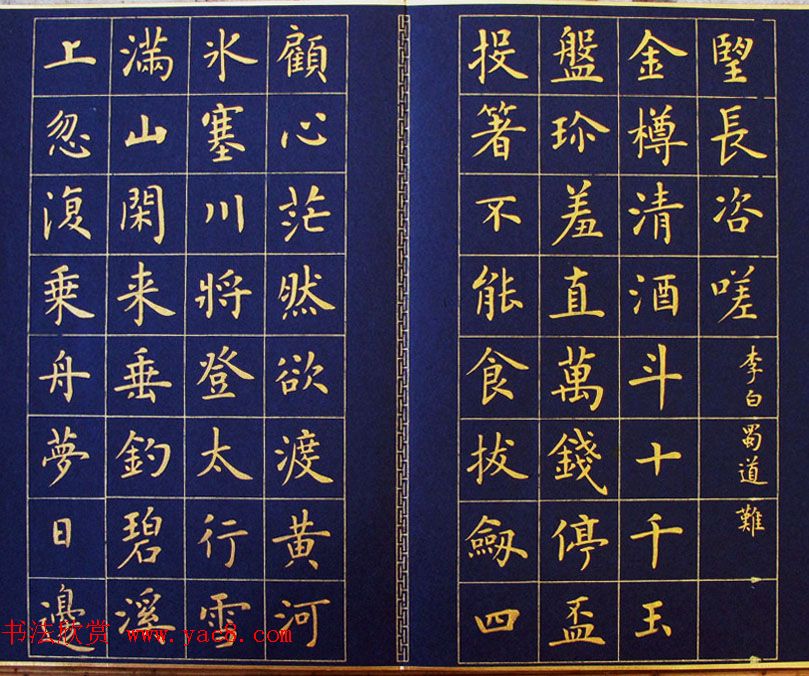 望長咨嗟
李白蜀道難
金樽清酒斗十千玉
盤珎羞直萬錢停盃
投箸不能食拔劔四
顧心茫然欲渡黄河
氷塞川將登太行雪
滿山閑来垂釣碧溪
上忽復乗舟夢日邊
书法欣赏 www.yac8.com